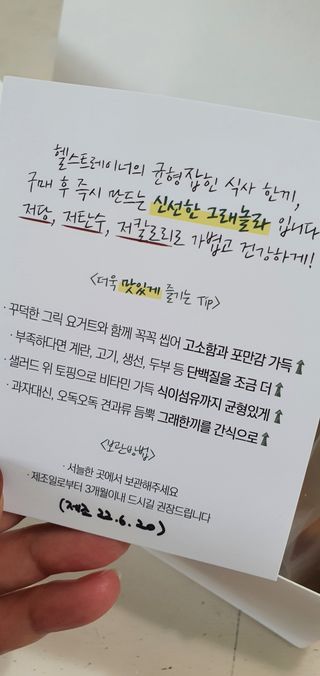 헬스트레이너의 균형잡힌 식사 한끼,
구매 후 즉시 만드는 신선한 그래놀라 입니다
저당, 저탄수, 저칼로리로 가볍고 건강하게!
<더욱 맛있게 즐기는 Tip>
· 꾸덕한 그릭 요거트와 함께 꼭꼭 씹어 고소함과 포만감 가득 ↑
· 부족하다면 계란, 고기, 생선, 두부 등 단백질을 조금 더 ↑
· 샐러드 위 토핑으로 비타민 가득 식이섬유까지 균형있게 ↑
· 과자대신, 오독오독 견과류 듬뿍 그래한끼를 간식으로 ↑
<보관방법>
· 서늘한 곳에서 보관해주세요
· 제조일로부터 3개월이내 드시길 권장드립니다
(제조 22.6.20)